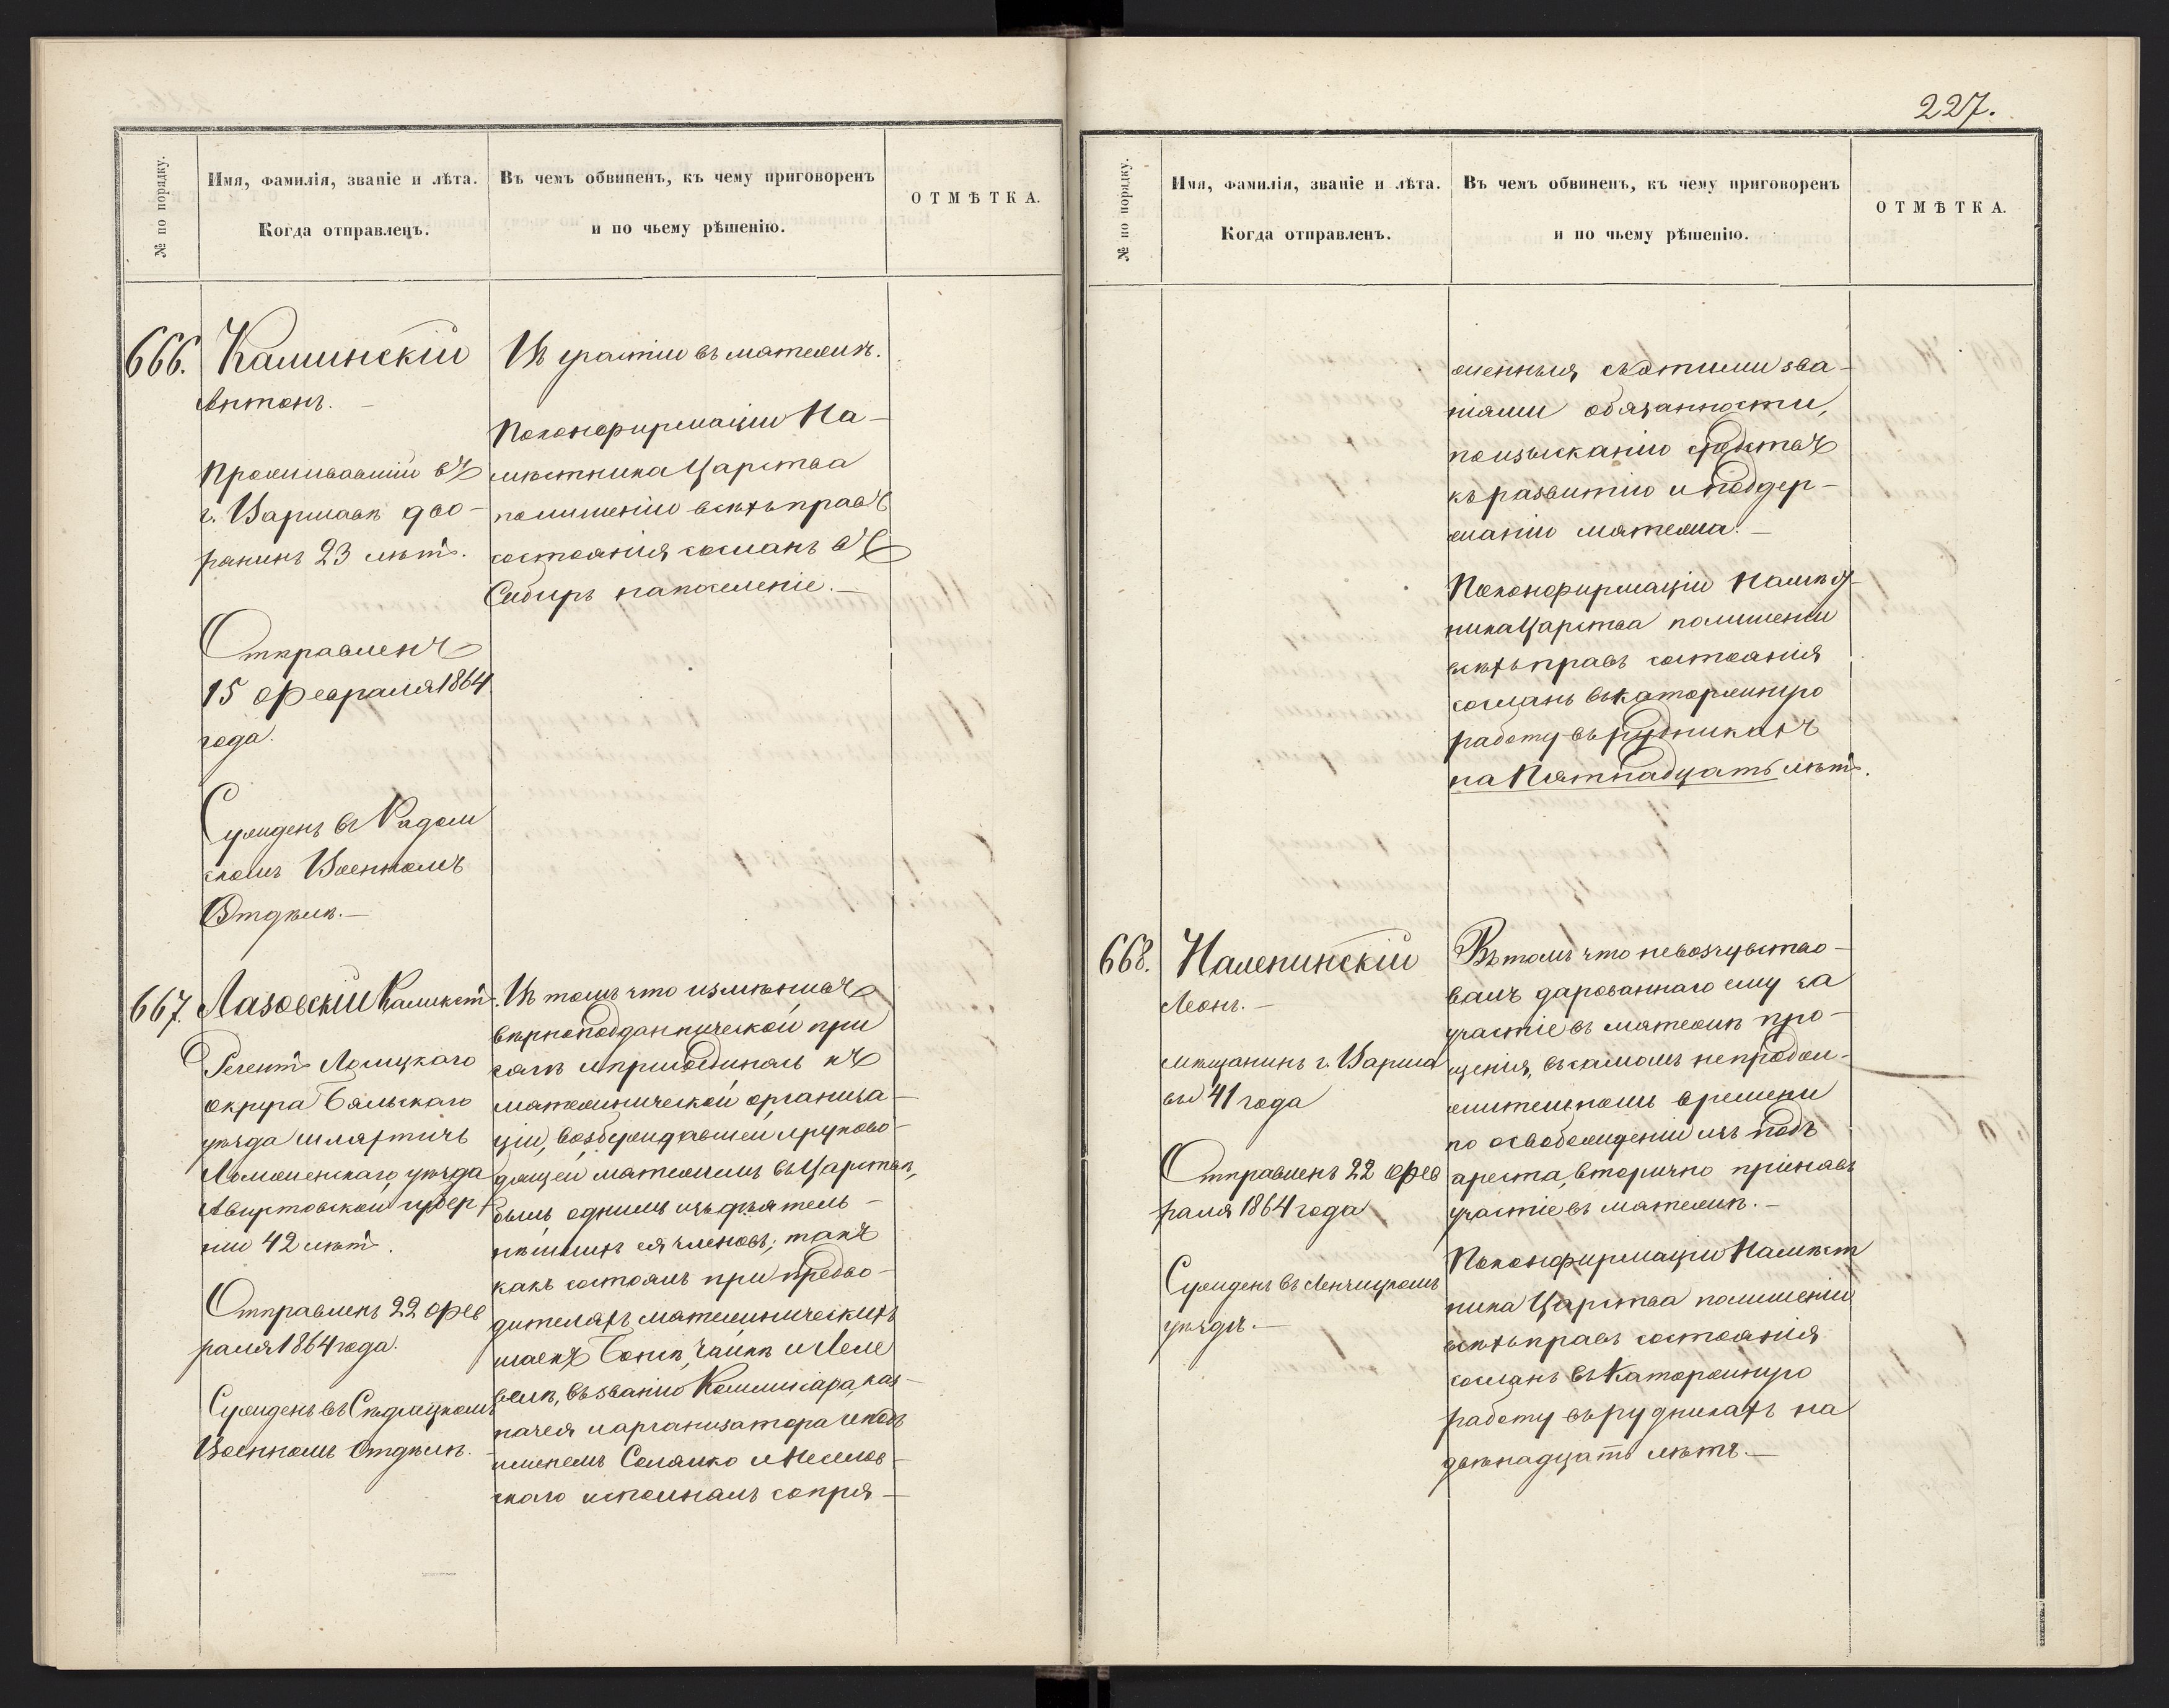 № по порядку.
Имя, фамилія, званіе и лѣта.
Когда отправленъ.
Въ чемъ обвиненъ, къ чему приговоренъ
и по чьему рѣшенію.
ОТМѢТКА.
666.
Каминскій
Антонъ. —
Проживавшій въ
г. Варшавѣ дво-
рянинъ 23 лѣтъ.
Отправленъ
15 февраля 1864
года.
Сужденъ въ Радом
скомъ Военномъ
Отдѣлѣ. —
Въ участіи въ мятежѣ.
По конфирмаціи На-
мѣстника Царства
по лишеніи всѣхъ правъ
состоянія сосланъ въ
Сибирь на поселеніе. —
667.
Лазовскій Каликстъ.
Регентъ Ломицкаго
округа Бяльскаго
уѣзда шляхтичъ
Ломженскаго уѣзда
Августовской губер
ніи 42 лѣтъ.
Отправленъ 22 фев
раля 1864 года.
Сужденъ въ Сѣдлецкомъ
Военномъ Отдѣлѣ.
Въ томъ что измѣнивъ
вѣрноподданнической при
сягѣ и присоединясь къ
мятежнической организа-
ціи, возбуждавшей и руково-
дящей мятежемъ въ Царствѣ,
былъ однимъ изъ дѣятель-
нѣйшихъ ея членовъ; такъ
какъ состоялъ при предво-
дителяхъ мятежническихъ
шаекъ Бонгѣ, Чайкѣ и Леле
велѣ, въ званіи Коммисара, каз-
начея и организатора и подъ
именемъ Солянко и Неслов-
скаго исполнялъ сопря-
227.
№ по порядку.
Имя, фамилія, званіе и лѣта.
Когда отправленъ.
Въ чемъ обвиненъ, къ чему приговоренъ
и по чьему рѣшенію.
ОТМѢТКА.
женныя съ этими зва-
ніями обязанности,
по изысканію средствъ
къ развитію и поддер-
жанію мятежа. —
По конфирмаціи Намѣст-
ника Царства по лишеніи
всѣхъ правъ состоянія
сосланъ въ каторжную
работу въ рудникахъ
на Пятнадцать лѣтъ.
668.
Наленинскій
Леонъ. —
мѣщанинъ г. Варша
вы 41 года
Отправленъ 22 фев
раля 1864 года
Сужденъ въ Ленчицкомъ
уѣздѣ. —
Въ томъ что невозчувство-
валъ дарованнаго ему за
участіе въ мятежѣ про-
щенія, въ самомъ непродол-
жительномъ времени
по освобожденіи изъ подъ
ареста, вторично принявъ
участіе въ мятежѣ. —
По конфирмаціи Намѣст
ника Царства по лишеніи
всѣхъ правъ состоянія
сосланъ въ Каторжную
работу въ рудникахъ на
двѣнадцать лѣтъ. —